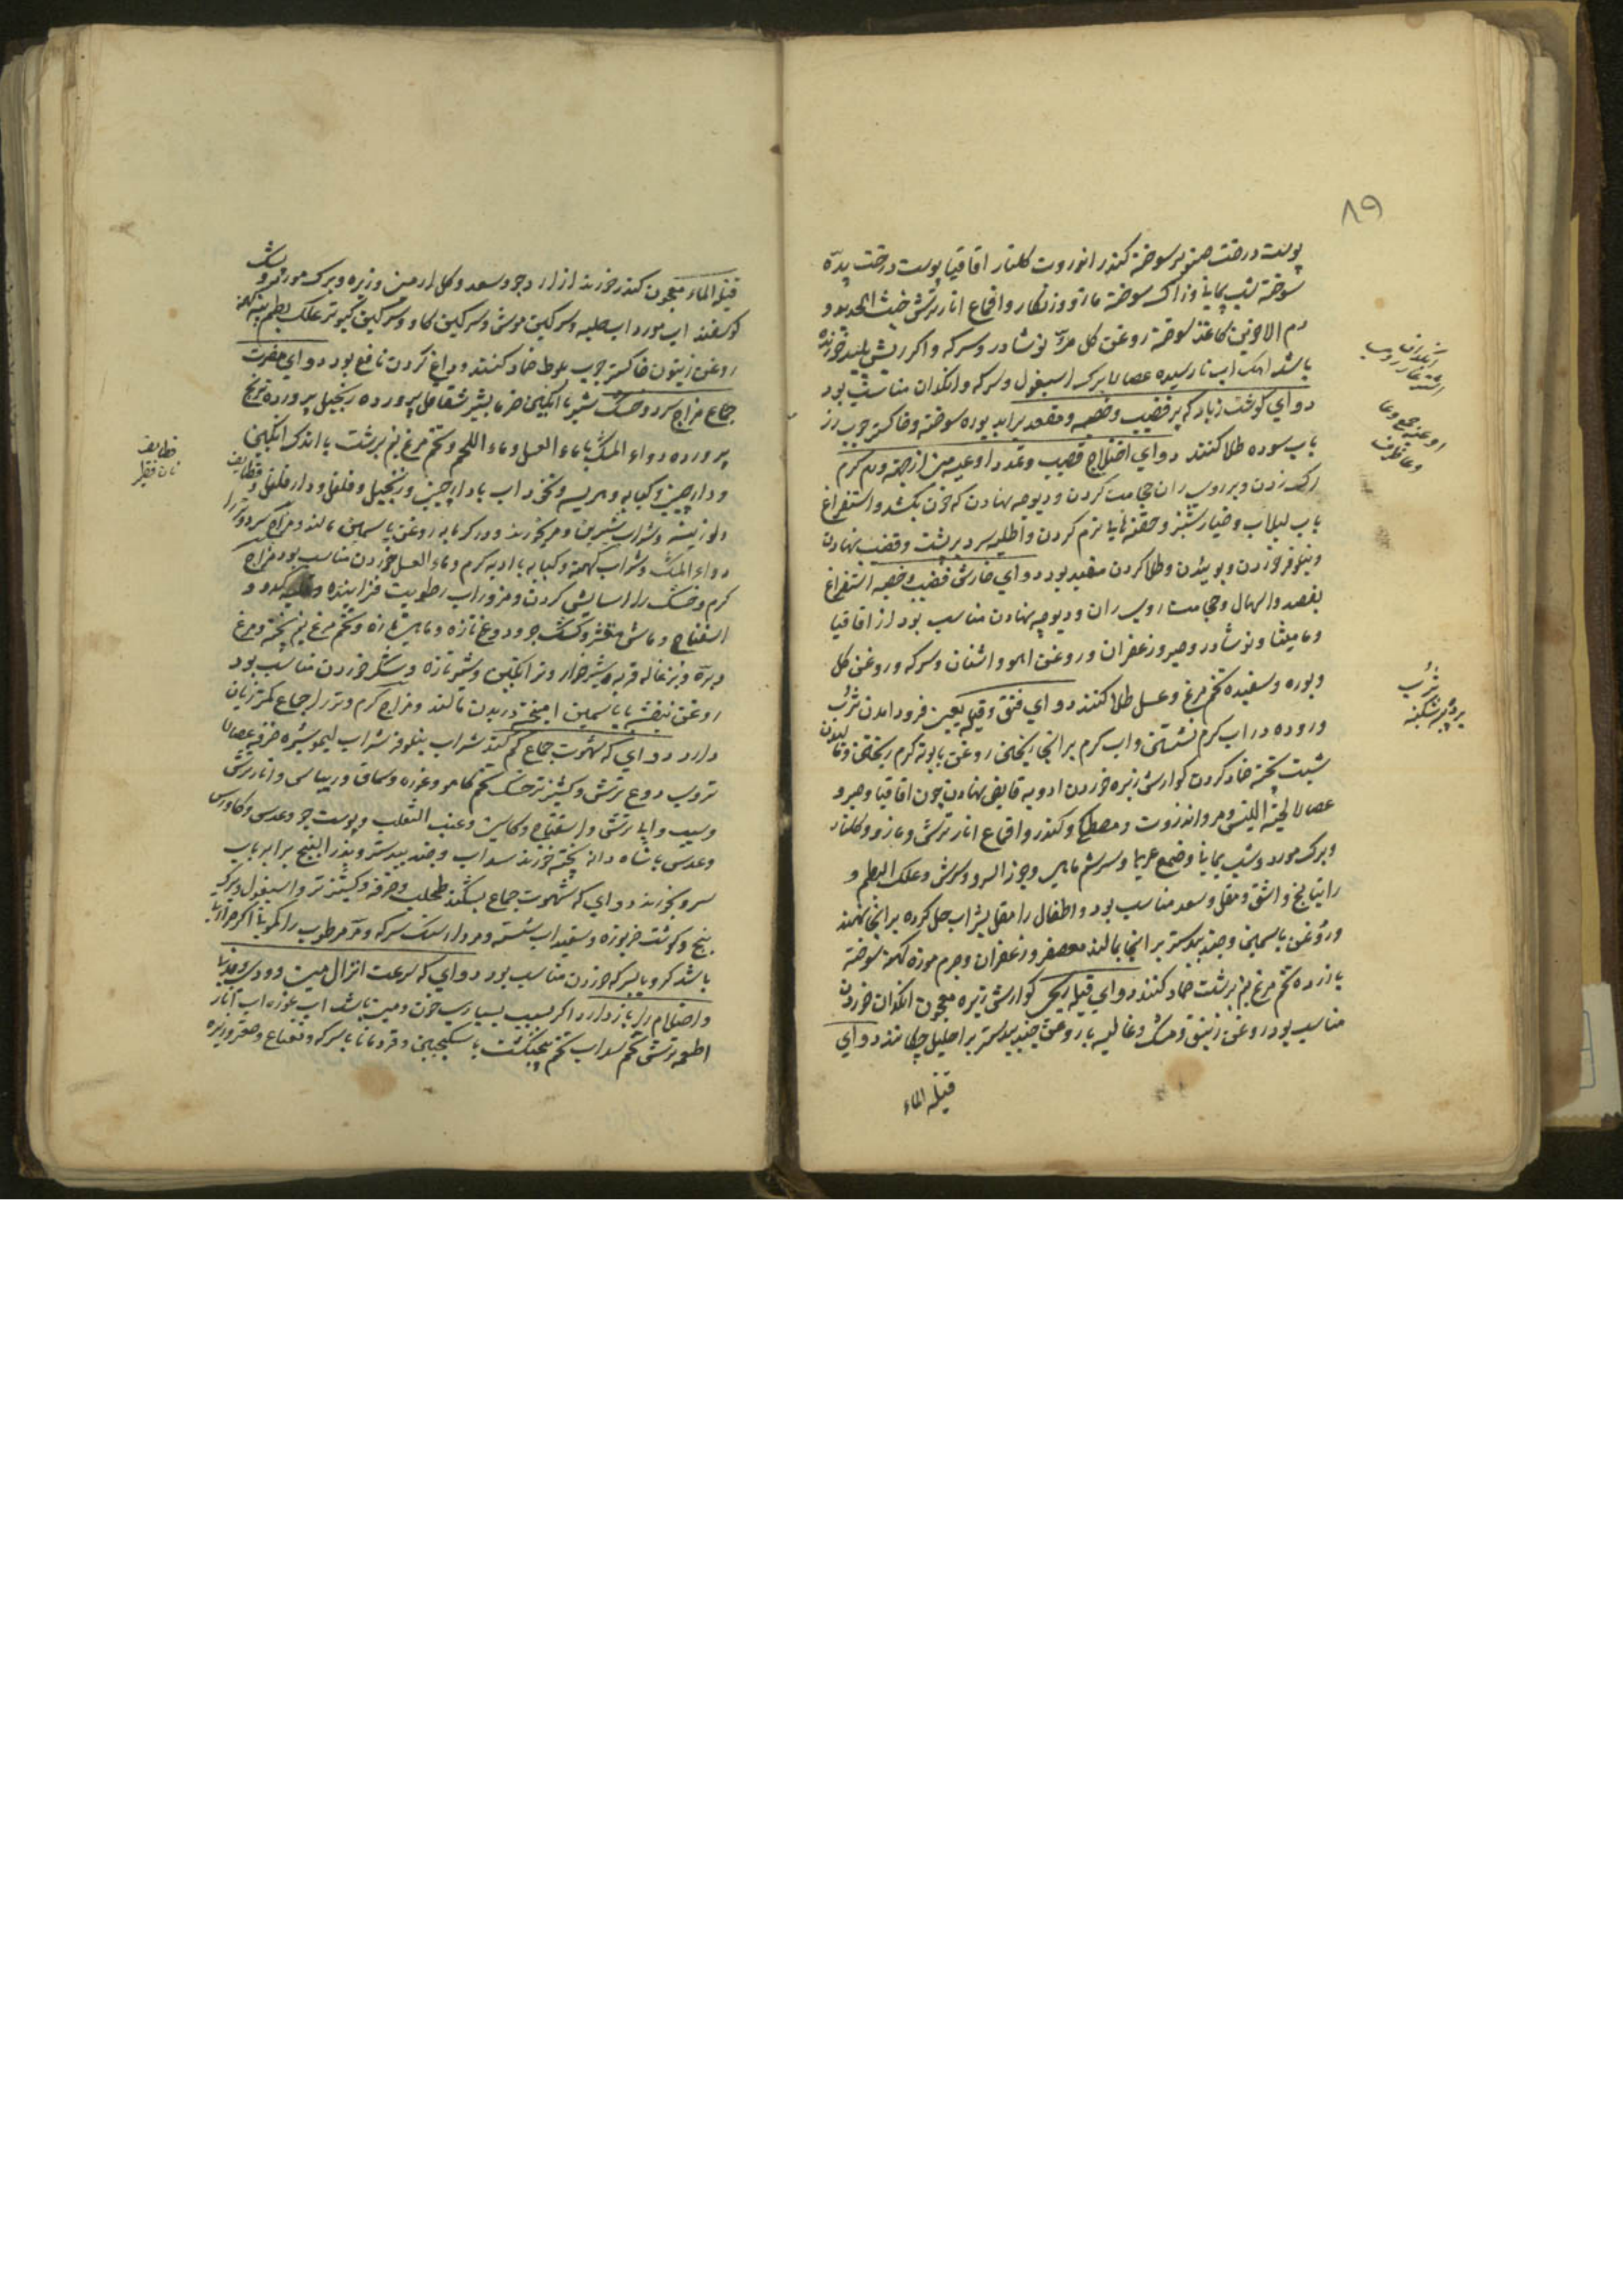 ۸۹
پوست درخت صنوبر سوخته کندر انزروت کلنار اقاقیا پوست درخت پده
سوخته شب یمانی و زاک سوخته مازو و زنکار و اقماع انار ترش خبث الحدید و
دم الاخوین کاغذ سوخته روغن کل مر نوشادر و سرکه و اکر ریش پلید خورنده
باشد اهک اب نارسیده عصاره برک اسبغول و سرکه و انکدان مناسب بود
دوای کوشت زیاد که بر قضیب و خصیه و مقعد براید بوره سوخته و خاکستر چوب رز
باب سوده طلا کنند دوای اختلاج قضیب و تمدد اوعیه منی از جهة ورم کرم
رک زدن و بر روی ران حجامت کردن و دیوجه نهادن که خون بکشد و استفراغ
باب لبلاب و خیارشنبر و حقنه های نرم کردن و اطلیه سرد بر پشت و قضیب نهادن
و نیلوفر خوردن و بوییدن و طلا کردن مفید بود دوای خارش قضیب و خصیه استفراغ
بفصد و اسهال و حجامت روی ران و دیوجه نهادن مناسب بود از اقاقیا
و مامیثا و نوشادر و صبر و زعفران و روغن اهو و اشنان و سرکه و روغن کل
و بوره و سفیده تخم مرغ و عسل طلا کنند دوای فتق و قیله یعنی فرود امدن ثرب
و روده در اب کرم نشستن و اب کرم بر انجا ریختن روغن بابونه کرم ریختن و
شبت پخته ضماد کردن کوارش زیره خوردن ادویه قابض نهادن چون اقاقیا و صبر و
عصاره لحیة التیس و مر و انزروت و مصطکی و کندر و اقماع انار ترش و مازو و کلنار
و برک مورد و شب یمانی و صمغ عربی و سریشم ماهی و جوز السرو و سریش و علک البطم و
راتیانج و اشق و مقل و سعد مناسب بود و اطفال را مقل بشراب حل کرده بر انجا نهند
و روغن یاسمین و جندبیدستر بر انجا بمالند معصفر و زعفران و چرم موزه کهنه سوخته
با زرده تخم مرغ نیم برشت ضماد کنند دوای قیله ریحی کوارش زیره معجون انکدان خوردن
مناسب بود روغن زنبق و مشک و غالیه با روغن جندبیدستر بر احلیل چکانند دوای
قیلة الماء
اوعیه جمع وعا
وعا ظرف
ثرب
پرده شکنبه
قیلة الماء معجون کندر خورند از ارد جو و سعد و کل ارمنی و زیره و برک مورد و پشک
کوسفند اب مورد اب حلبه و سرکین موش و سرکین کاو و سرکین کبوتر علک بطم پیه کهنه
روغن زیتون خاکستر چوب بلوط ضماد کنند و داغ کردن نافع بود دوای مضرت
جماع مزاج سرد و خشک شیر با انکبین خرما بشیر شقاقل پرورده زنجبیل پرورده ترنج
پرورده دواء المسک با ماء العسل و ماء اللحم و تخم مرغ نیم برشت با اندک انکبین
و دارچینی و کبابه و هریسه و نخود اب با دارچینی و زنجبیل و فلفل و دارفلفل و قطایف
و لوزینه و شراب شیرین و مر بخورند و در کرمابه روغن یاسمین مالند و مزاج سرد و تر را
دواء المسک و شراب کهنه و کبابه با ادویه کرم و ماء العسل خوردن مناسب بود مزاج
کرم و خشک را اسایش کردن و مزور اب رطوبت فزاینده کدو و
اسفناج و ماش مقشر و کشک جو و دوغ تازه و ماهی تازه و تخم مرغ نیم پخته و مرغ
و بره و بزغاله فربه و شیرخوار و ترانکبین و شیر تازه و شکر خوردن مناسب بود
روغن بنفشه با یاسمین امیخته در بدن مالند و مزاج کرم و تر را جماع کمتر زیان
دارد دوای که شهوت جماع کم کند شراب نیلوفر شراب لیمو شیره خرفه عصاره
ترب دوغ ترش و کشنیز تر خشک تخم کاهو و غوره و سماق و ریباس و انار ترش
و سیب و ابا ترش و اسفناج و کاسنی و عنب الثعلب و پوست جو و عدس و کاورس
و عدس با شاه دانه پخته خورند سداب و جندبیدستر و بذر البنج برابر باب
سرو بخورند دوای که شهوت جماع بشکند طحلب و خرفه و کشنیز تر و اسبغول و برک
بنج و کوشت خربوزه و سفیداب شسته و مردارسنک سرکه و مر مرطوب را کمونی اکر حرارت
باشد کرویا بسرکه خوردن مناسب بود دوای که سرعت انزال منی و ودی و مذی
و احتلام را باز دارد اکر بسبب بسیاری خون و منی باشد اب غوره اب انار
اطعمه ترش تخم سداب تخم پنجنکشت با سکنجبین و قردمانا با سرکه و نعناع و صعتر و زیره
قطایف
نان فطیر